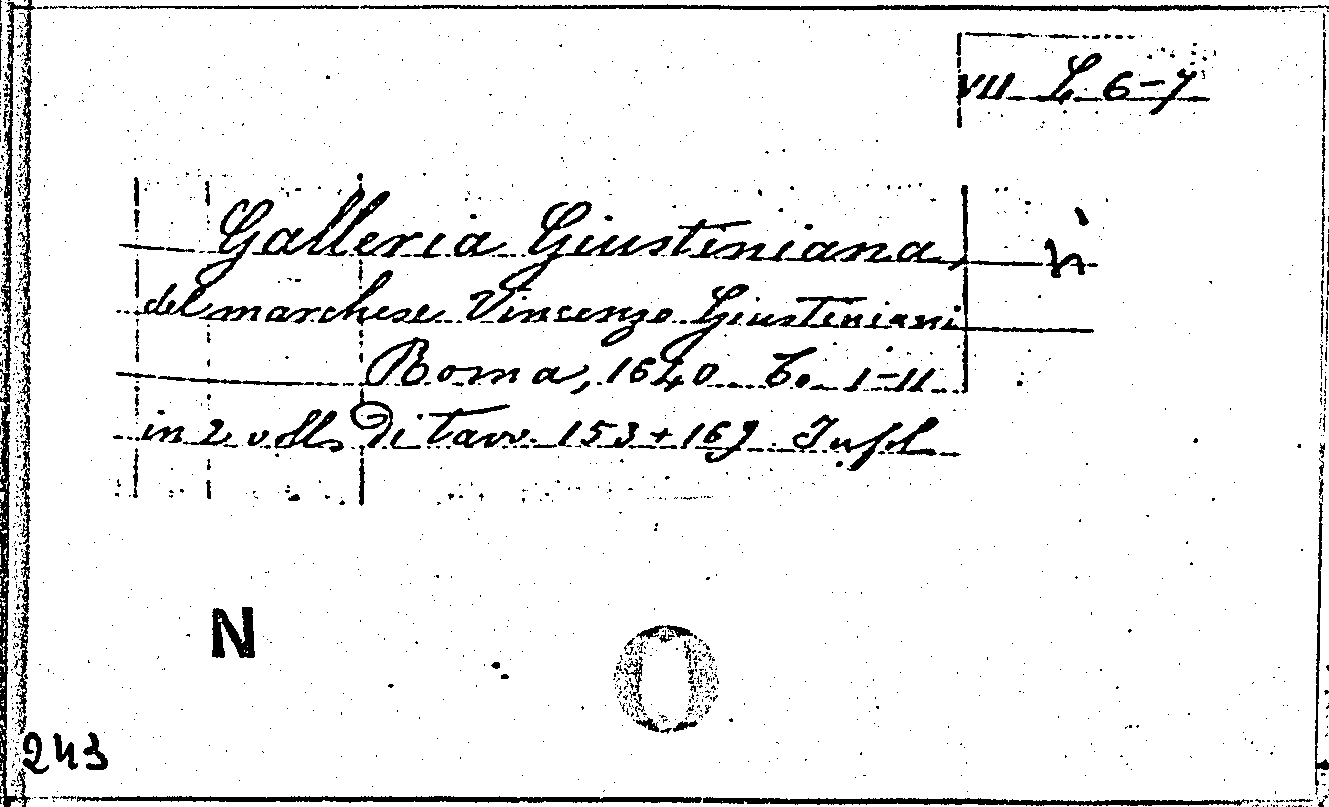 VII L. 6-7
Galleria Giustiniana,
del marchese Vincenzo Giustiniani
Roma, 1640. To. I-II
in 2 voll. di Tavv. 153+169. In fol
N
243